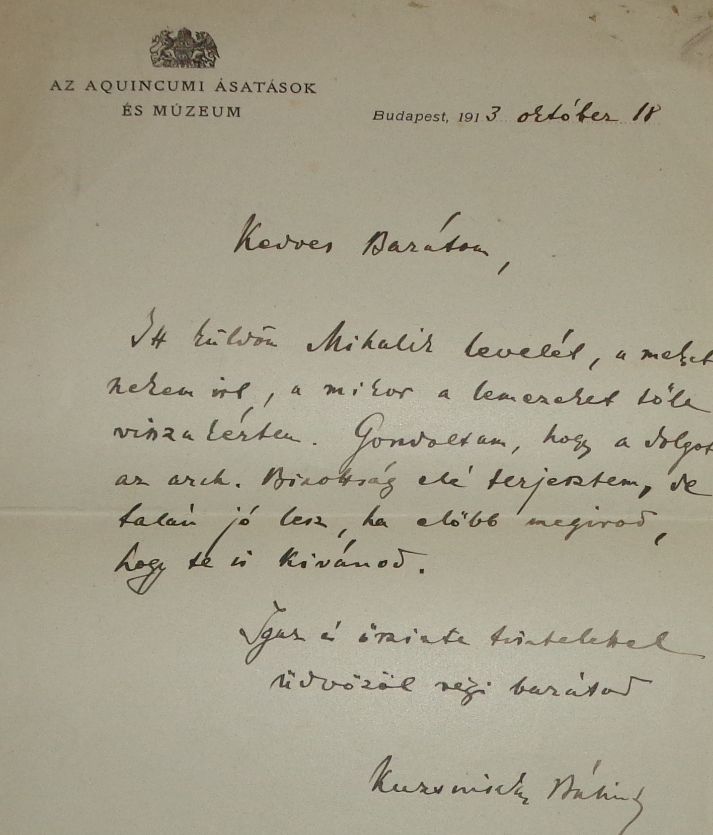 AZ AQUINCUMI ÁSATÁSOK
ÉS MÚZEUM
Budapest, 1913 október 18
Kedves Barátom,
Itt küldöm Mihalik levelét, a melyet
nekem írt, a mikor a lemezeket tőle
visszakértem. Gondoltam, hogy a dolgot
az arch. Bizottság elé terjesztem, de
talán jó lesz, ha előbb megirod,
hogy te is kivánod.
Igaz és őszinte tisztelettel
üdvözöl régi barátod
Kuzsinszky Bálint